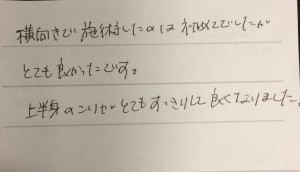 横向きで施術したのは初めてでしたが
とても良かったです。
上半身のコリがとてもすっきりして良くなりました。